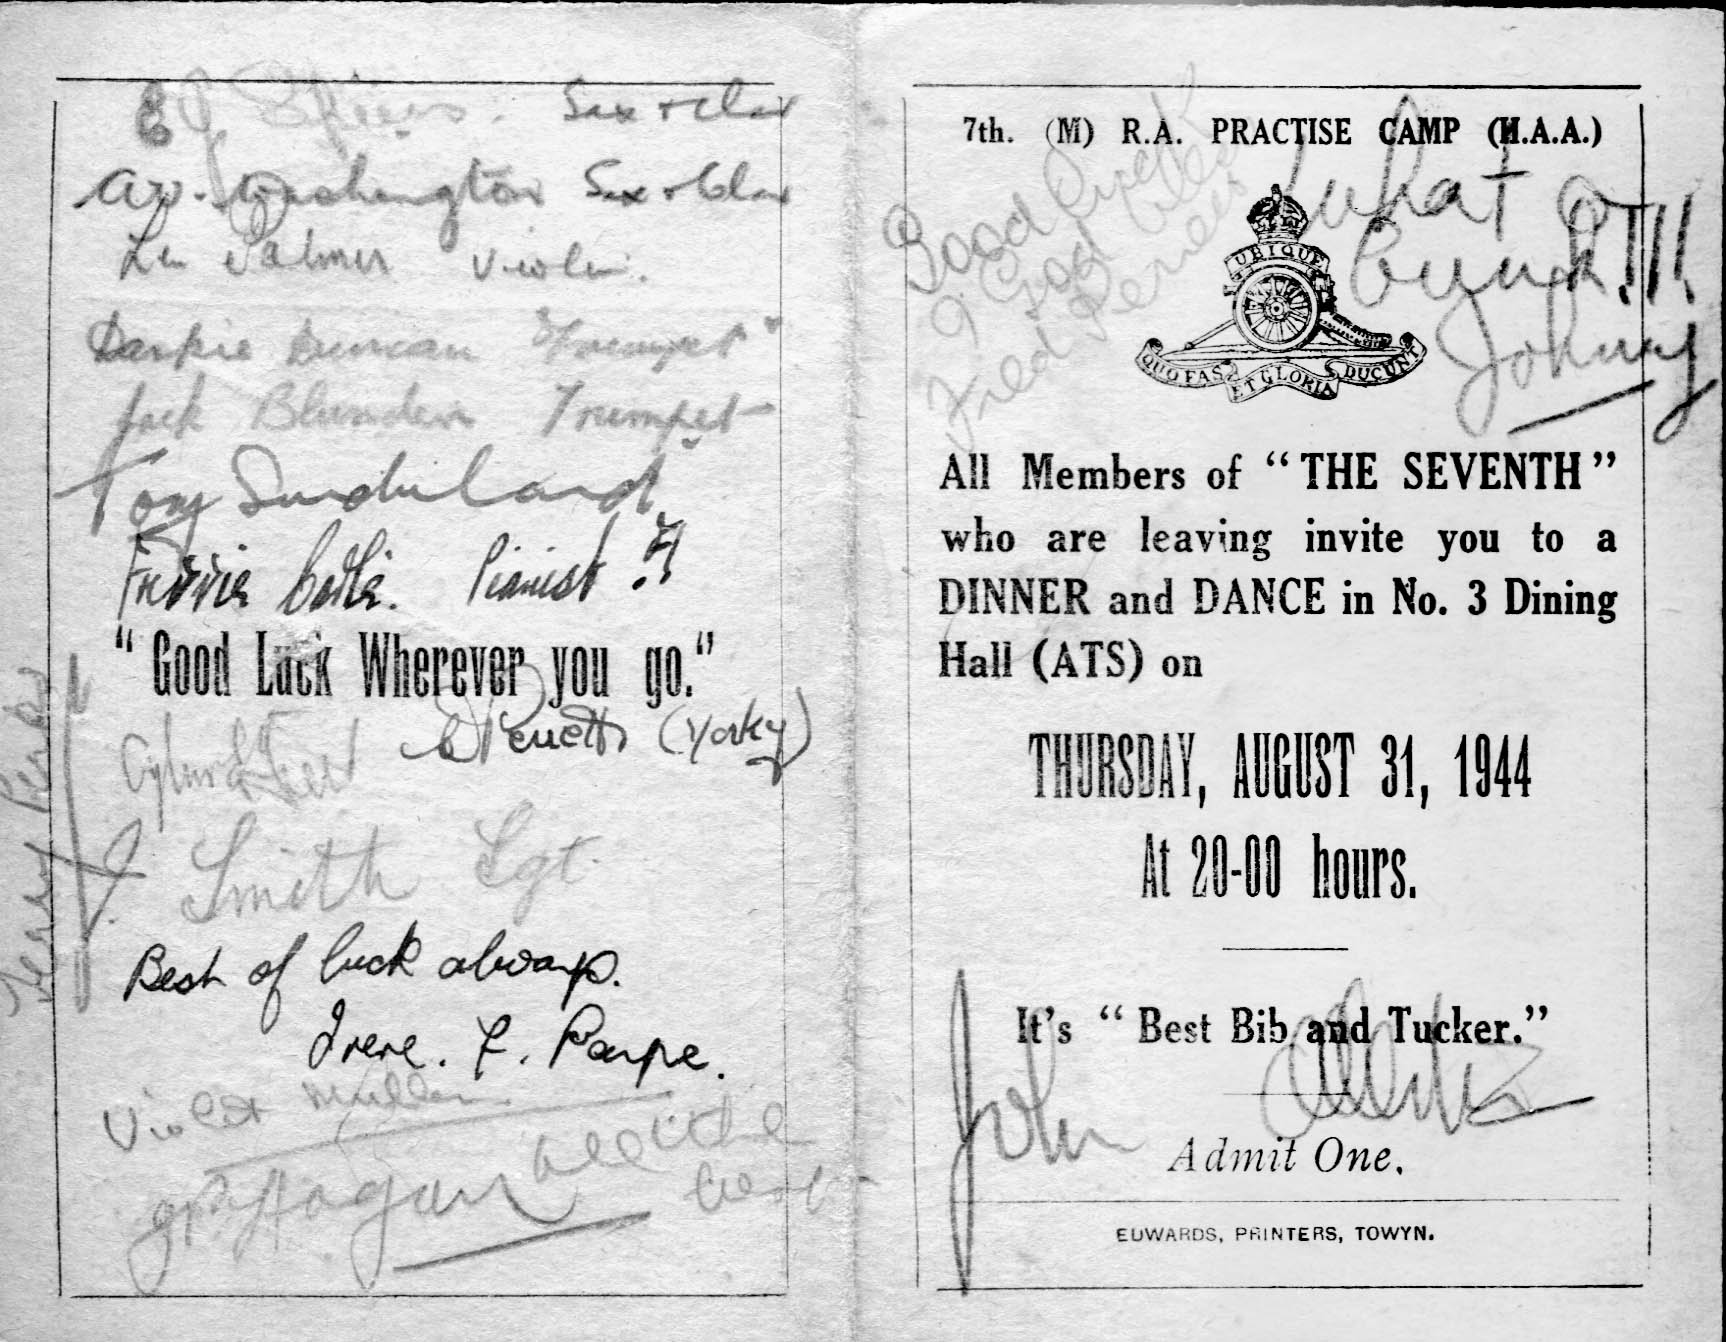 Sax + Clar
A.W. Washington Sax + Clar
Len Palmer Violin.
Darkie Duncan "Trumpet"
Jack Blunden Trumpet
Tony
Freddie Pianist
"Good Luck Wherever you go."
(Yorky)
J. Smith Sgt.
Best of luck always.
Irene. F.
Violet
all the best
Terry
7th. (M) R.A. PRACTISE CAMP (H.A.A.)
Good Luck
& God Bless
Fred
What a
Bunch!!!
Johnny
UBIQUE
QUO FAS ET GLORIA DUCUNT
All Members of "THE SEVENTH"
who are leaving invite you to a
DINNER and DANCE in No. 3 Dining
Hall (ATS) on
THURSDAY, AUGUST 31, 1944
At 20-00 hours.
It's "Best Bib and Tucker."
John
Admit One.
EDWARDS, PRINTERS, TOWYN.